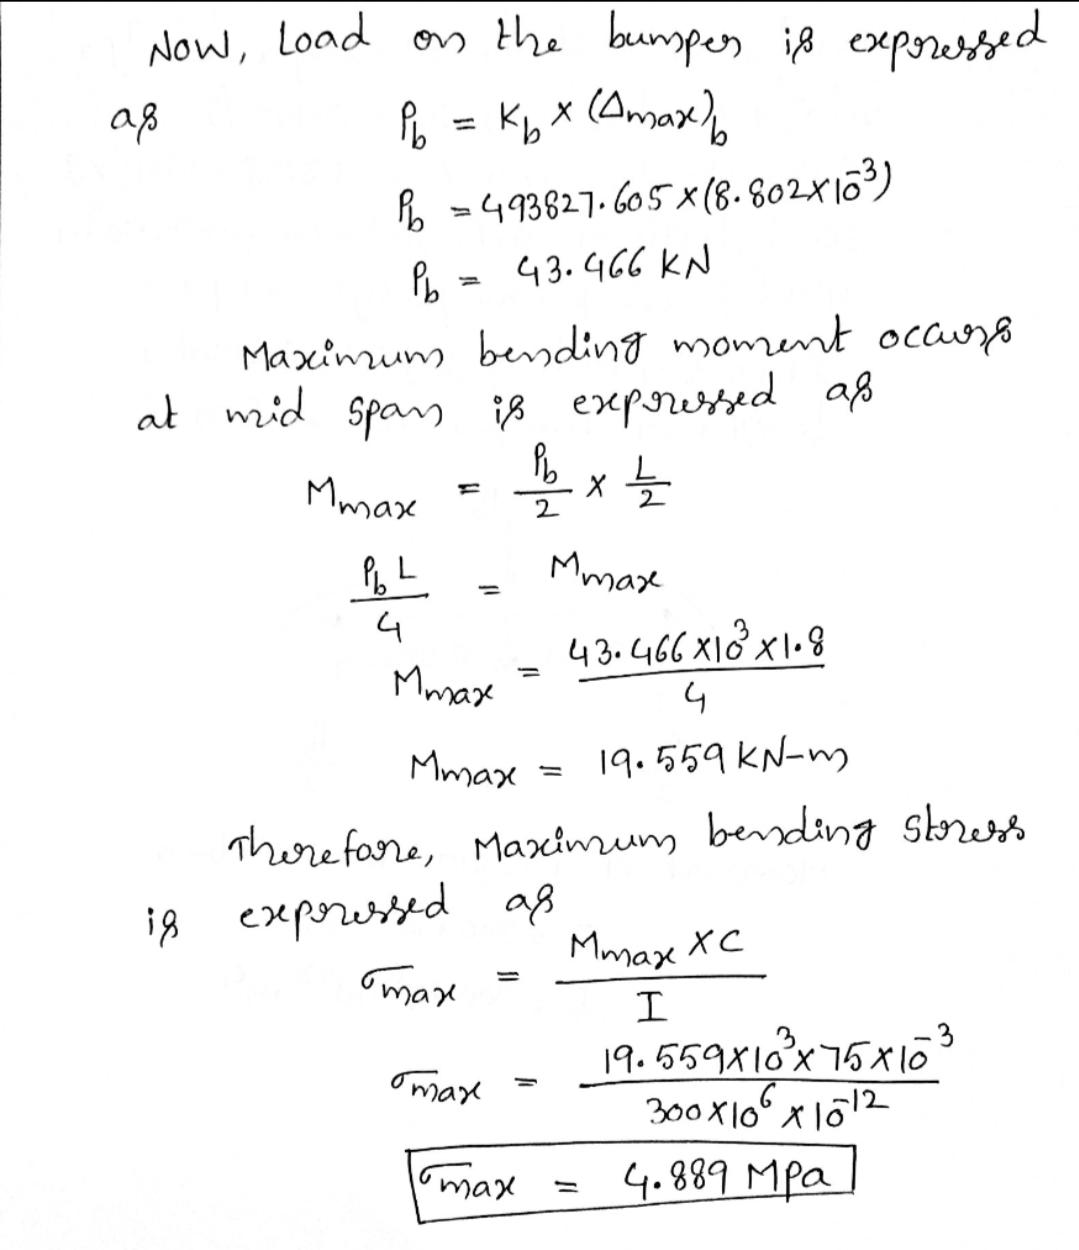 Now, Load on the bumper is expressed
as
P_b = K_b × (Δmax)_b
P_b = 493827.605 × (8.802×10^-3)
P_b = 43.466 KN
Maximum bending moment occurs
at mid span is expressed as
Mmax = P_b/2 × L/2
P_b L/4 = Mmax
Mmax = 43.466×10^3×1.8/4
Mmax = 19.559 KN-m
Therefore, Maximum bending stress
is expressed as
σmax = Mmax × C/I
σmax = 19.559×10^3×75×10^-3/300×10^6×10^-12
σmax = 4.889 MPa